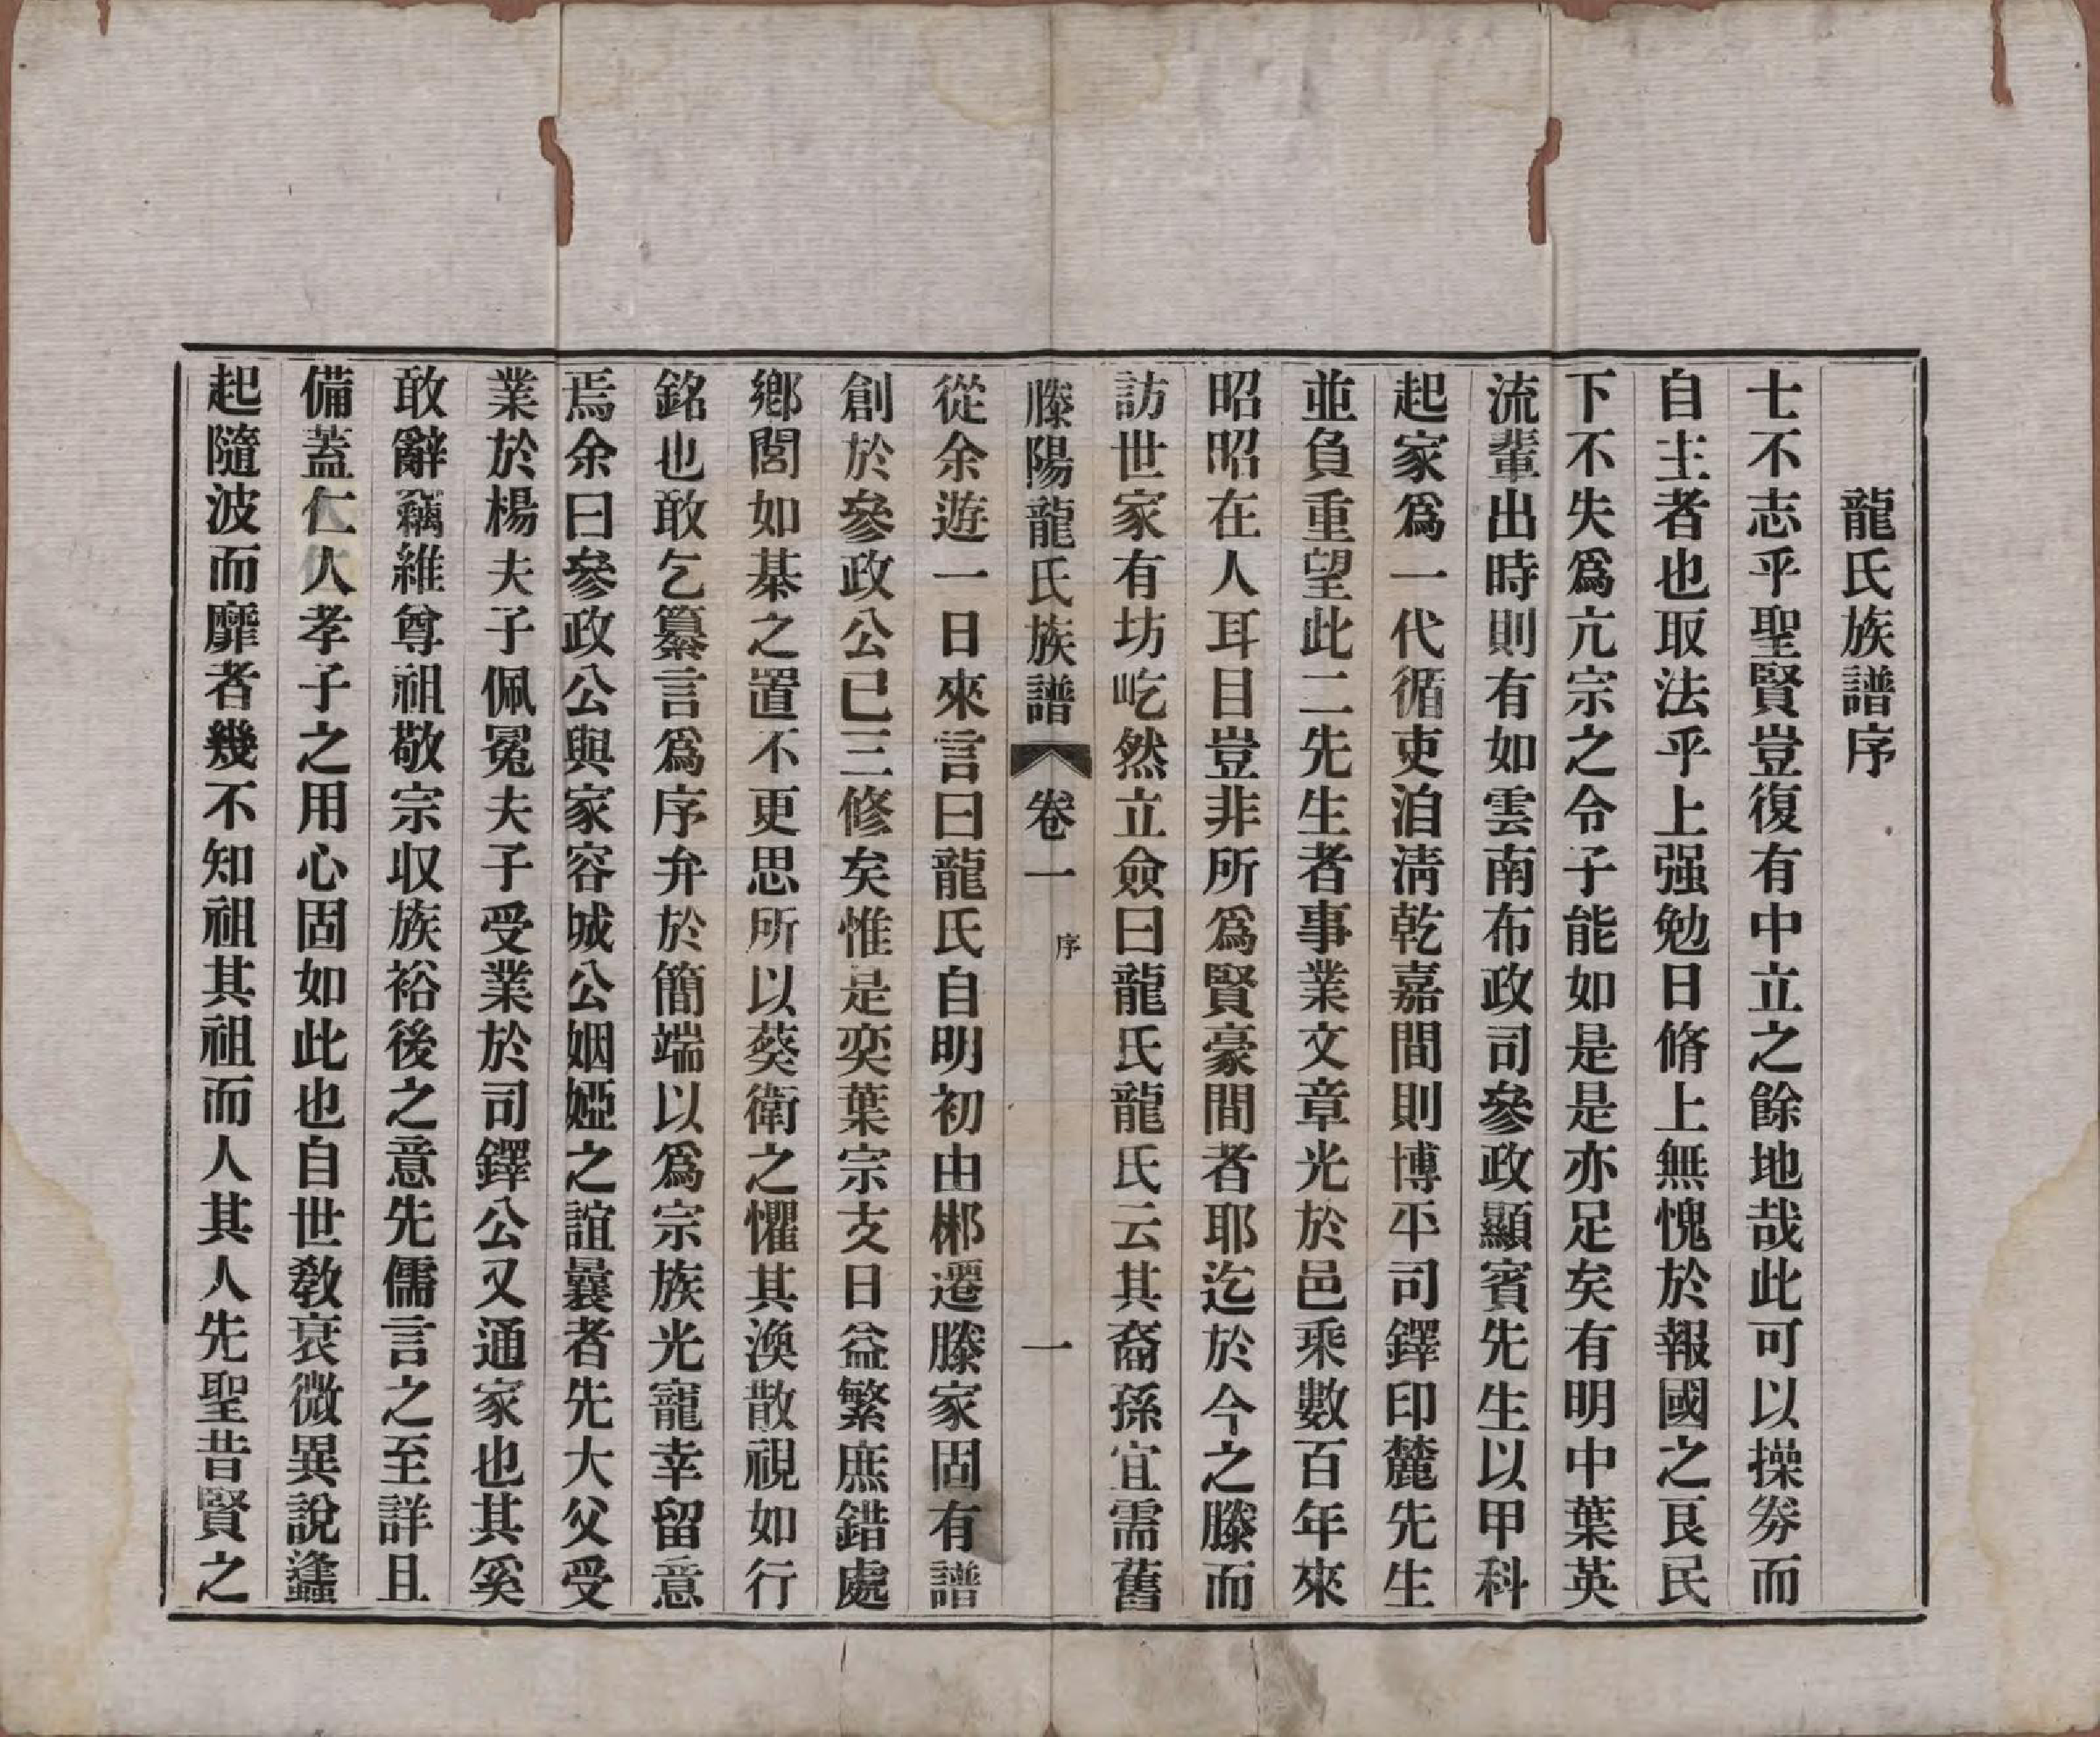 龍氏族譜序
士不志乎聖賢豈復有中立之餘地哉此可以操券而
自主者也取法乎上强勉日脩上無愧於報國之良民
下不失爲亢宗之令子能如是是亦足矣有明中葉英
流輩出時則有如雲南布政司參政顯賓先生以甲科
起家爲一代循吏洎淸乾嘉間則博平司鐸印麓先生
並負重望此二先生者事業文章光於邑乘數百年來
昭昭在人耳目豈非所爲賢豪間者耶迄於今之滕而
訪世家有坊屹然立僉曰龍氏龍氏云其裔孫宜需舊
滕陽龍氏族譜 卷一 序 一
從余遊一日來言曰龍氏自明初由郴遷滕家固有譜
創於參政公已三修矣惟是奕葉宗支日益繁庶錯處
鄉閭如棊之置不更思所以葵衛之懼其渙散視如行
銘也敢乞纂言爲序弁於簡端以爲宗族光寵幸留意
焉余曰參政公與家容城公姻婭之誼曩者先大父受
業於楊夫子佩冕夫子受業於司鐸公又通家也其奚
敢辭竊維尊祖敬宗収族裕後之意先儒言之至詳且
備蓋仁人孝子之用心固如此也自世敎衰微異說蠭
起隨波而靡者幾不知祖其祖而人其人先聖昔賢之